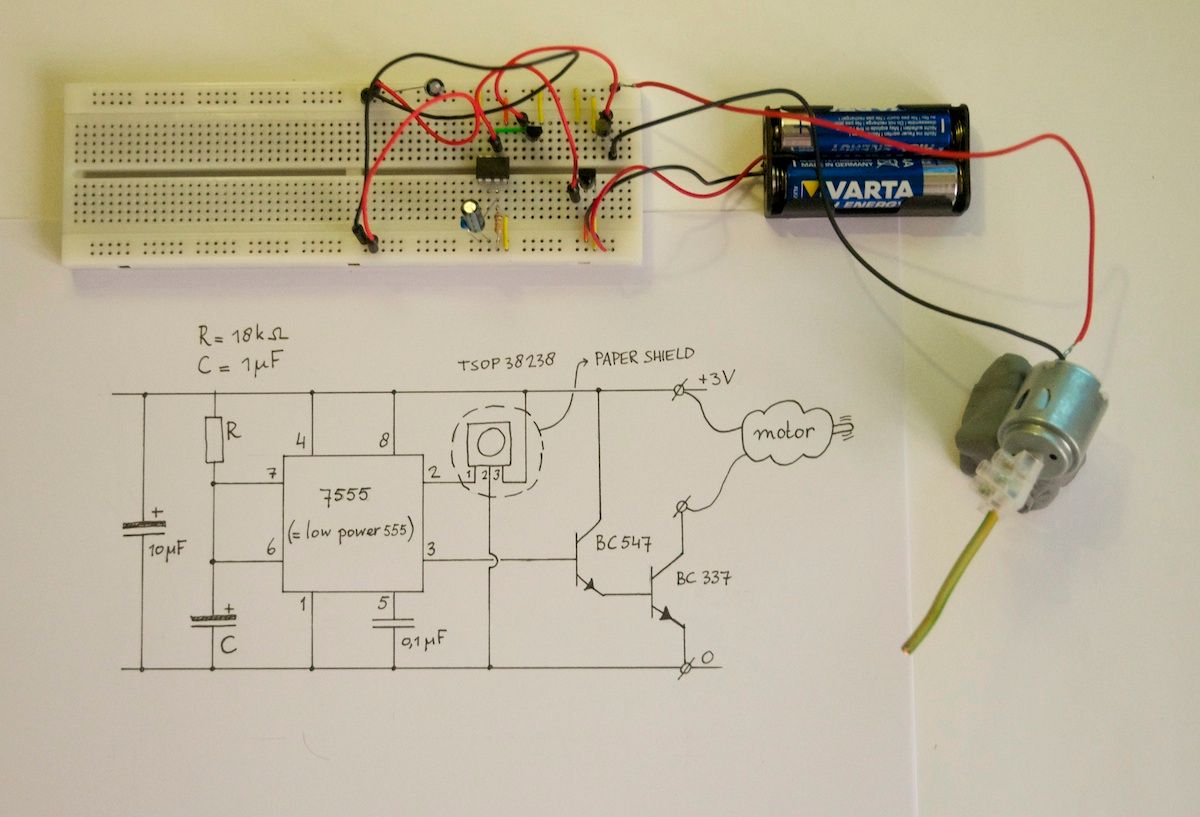 MADE IN GERMANY
VARTA
ENERGY
R = 18kΩ
C = 1µF
TSOP 38238
PAPER SHIELD
+3V
R
4
8
motor
7
7555
2
1 2 3
(= low power 555)
+
10µF
6
3
BC547
BC 337
1
5
+
C
0,1µF
0